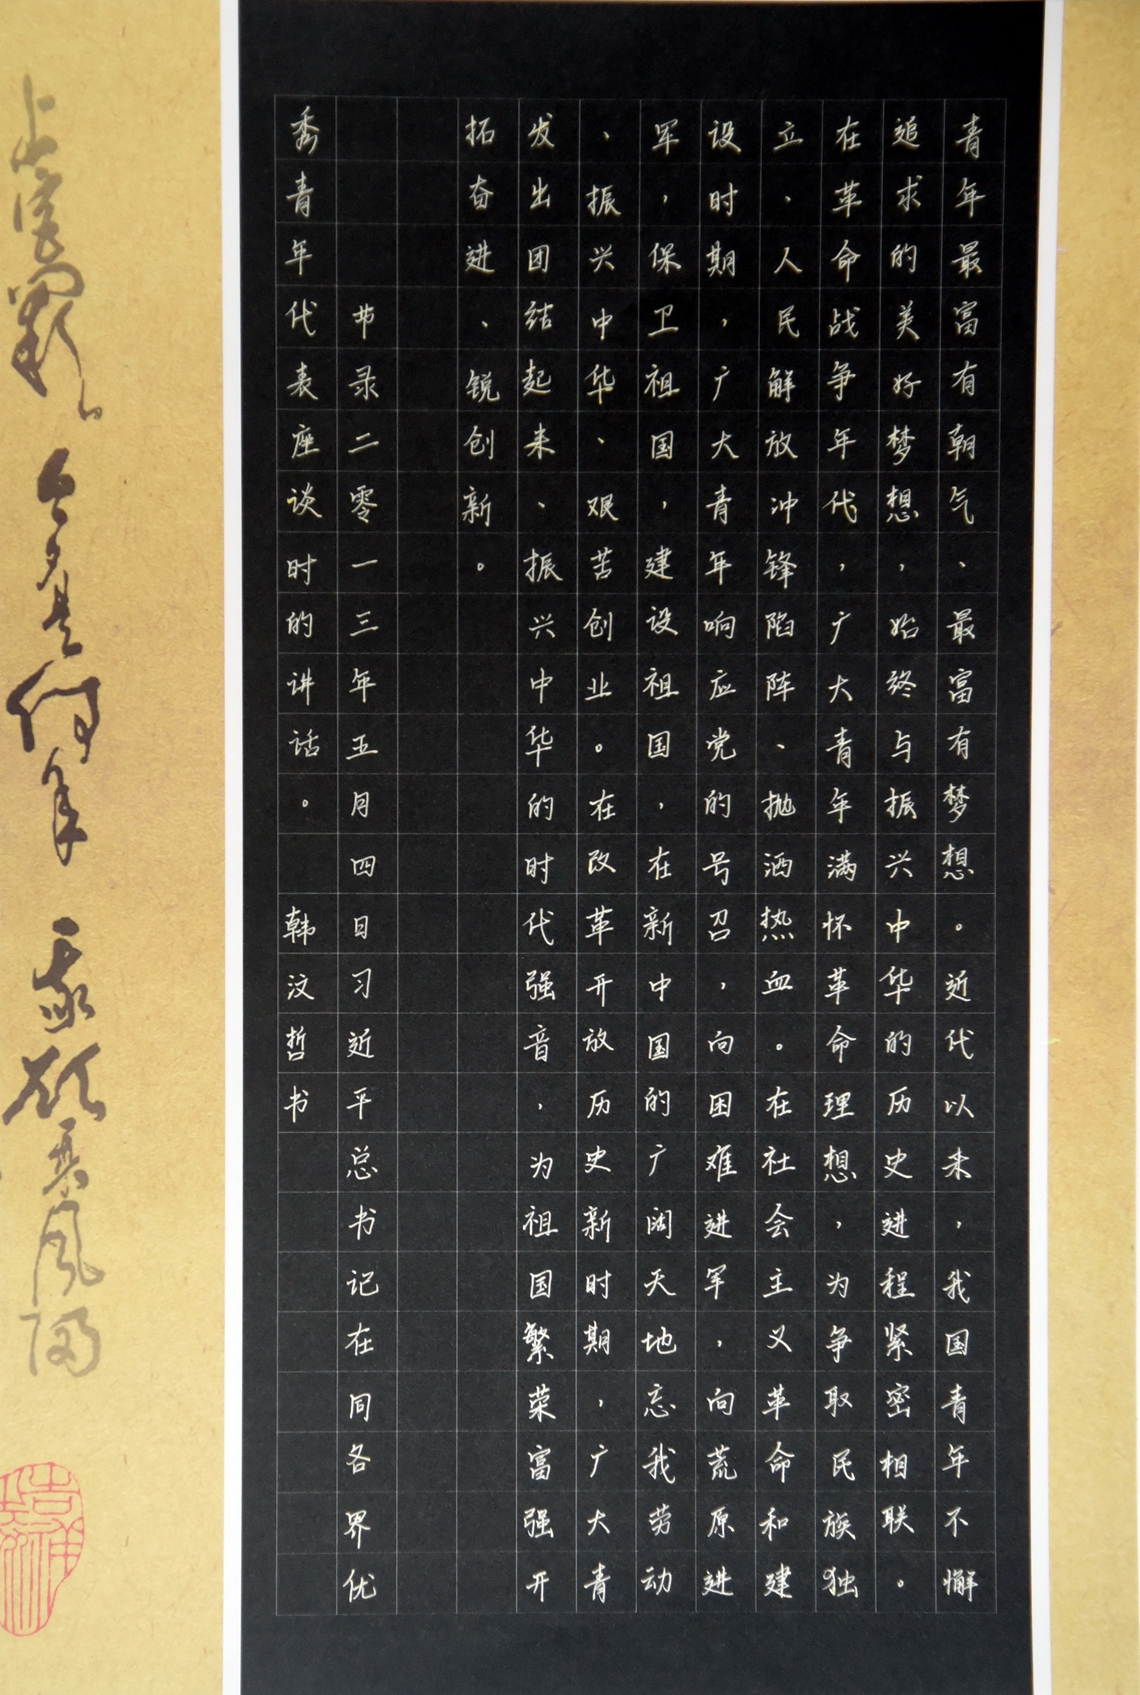 青年最富有朝气、最富有梦想。近代以来，我国青年不懈
追求的美好梦想，始终与振兴中华的历史进程紧密相联。
在革命战争年代，广大青年满怀革命理想，为争取民族独
立、人民解放冲锋陷阵、抛洒热血。在社会主义革命和建
设时期，广大青年响应党的号召，向困难进军，向荒原进
军，保卫祖国，建设祖国，在新中国的广阔天地忘我劳动
、振兴中华、艰苦创业。在改革开放历史新时期，广大青
发出团结起来、振兴中华的时代强音，为祖国繁荣富强开
拓奋进、锐创新。
节录二零一三年五月四日习近平总书记在同各界优
秀青年代表座谈时的讲话。 韩汶哲书